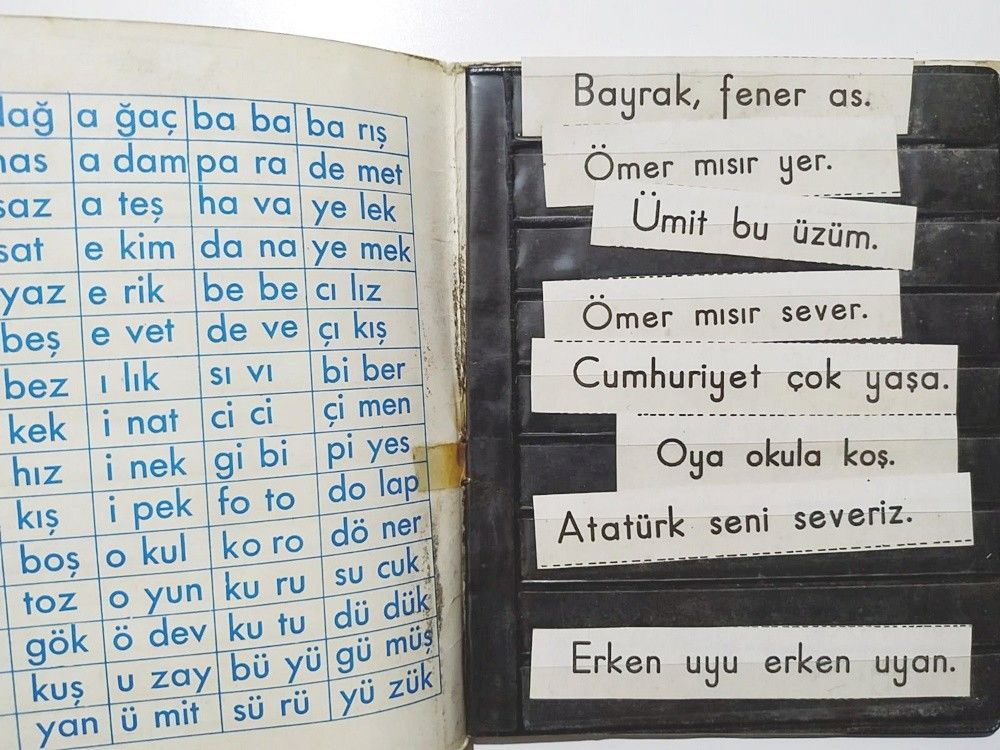 dağ a ğaç ba ba ba rış
a dam pa ra de met
saz a teş ha va ye lek
sat e kim da na ye mek
yaz e rik be be cı lız
beş e vet de ve çı kış
bez ı lık sı vı bi ber
kek i nat ci ci çi men
hız i nek gi bi pi yes
kış i pek fo to do lap
boş o kul ko ro dö ner
toz o yun ku ru su cuk
gök ö dev ku tu dü dük
kuş u zay bü yü gü müş
yan ü mit sü rü yü zük
Bayrak, fener as.
Ömer mısır yer.
Ümit bu üzüm.
Ömer mısır sever.
Cumhuriyet çok yaşa.
Oya okula koş.
Atatürk seni severiz.
Erken uyu erken uyan.